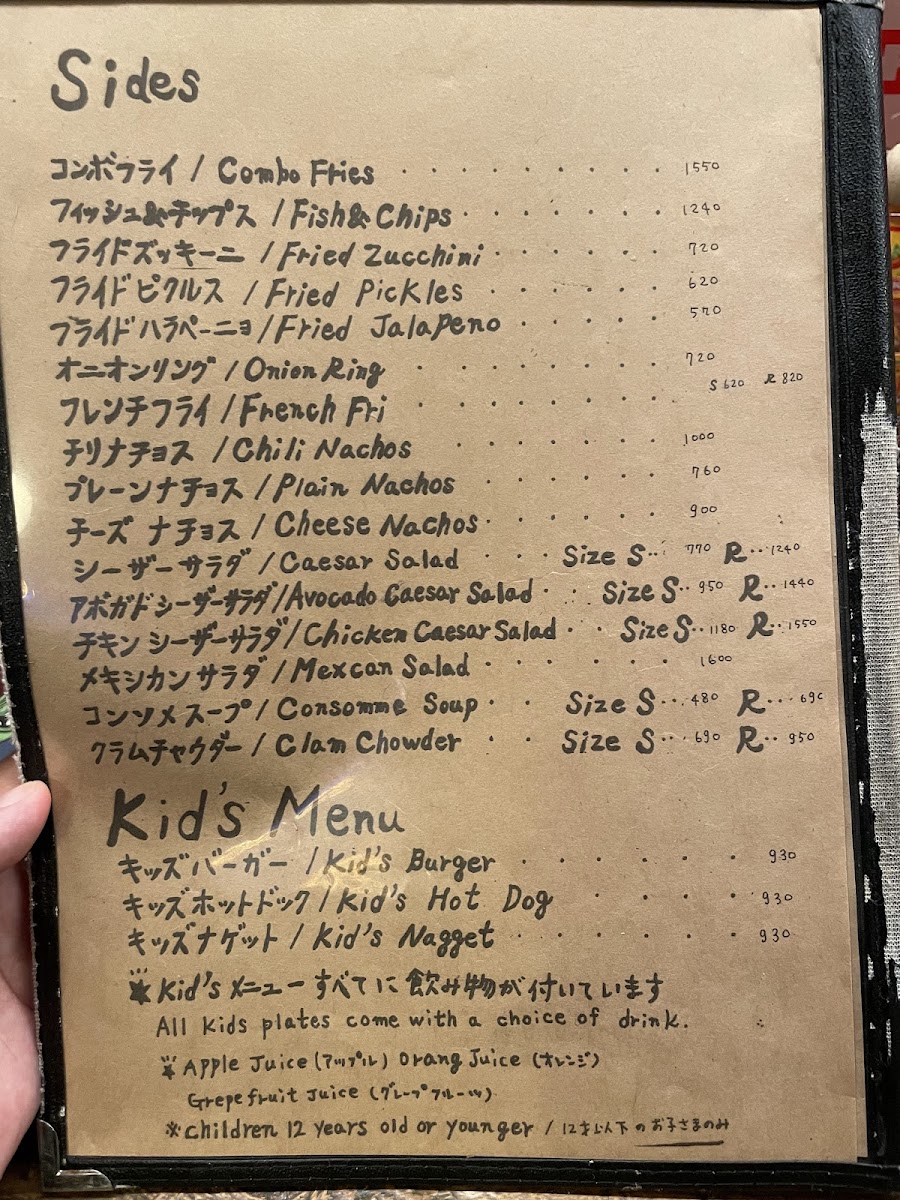 Sides
コンボフライ / Combo Fries · · · · · · · · 1550
フィッシュ&チップス / Fish & Chips · · · · · · 1240
フライドズッキーニ / Fried Zucchini · · · · · · 720
フライドピクルス / Fried Pickles · · · · · 620
フライドハラペーニョ / Fried Jalapeno · · · · · 570
オニオンリング / Onion Ring · · · · · · · 720
フレンチフライ / French Fri · · · · · · · S 620 R 820
チリナチョス / Chili Nachos · · · · · · 1000
プレーンナチョス / Plain Nachos · · · · · 760
チーズ ナチョス / Cheese Nachos · · · · · 900
シーザーサラダ / Caesar Salad · · · Size S·· 770 R·· 1240
アボガドシーザーサラダ/Avocado Caesar Salad · · Size S·· 950 R·· 1440
チキン シーザーサラダ/Chicken Caesar Salad · · Size S·· 1180 R·· 1550
メキシカンサラダ / Mexcan Salad · · · · · · 1600
コンソメスープ / Consomme Soup · · · Size S··· 480 R··· 690
クラムチャウダー / Clam Chowder · · Size S··· 690 R·· 950
Kid's Menu
キッズバーガー / Kid's Burger · · · · · · 930
キッズホットドック / Kid's Hot Dog · · · · 930
キッズナゲット / Kid's Nagget · · · · · · 930
★Kid'sメニューすべてに飲み物が付いています
All kids plates come with a choice of drink.
Apple Juice (アップル) Orang Juice (オレンジ)
Grepefruit Juice (グレープフルーツ)
※Children 12 years old or younger / 12才以下のお子さまのみ